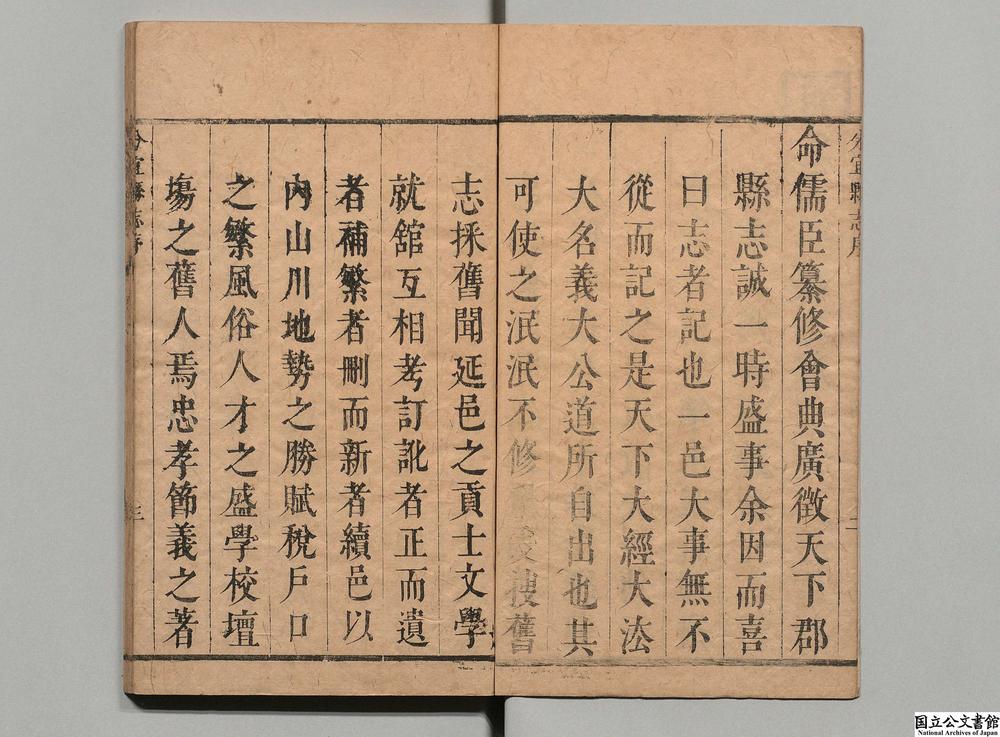 分宜縣志序
二
命儒臣纂修會典廣徵天下郡
縣志誠一時盛事余因而喜
曰志者記也一邑大事無不
從而記之是天下大經大法
大名義大公道所自出也其
可使之泯泯不修 爰搜舊
志採舊聞延邑之貢士文學
就舘互相考訂訛者正而遺
者補繁者刪而新者續邑以
內山川地勢之勝賦稅戶口
之繁風俗人才之盛學校壇
場之舊人焉忠孝節義之著
分宜縣志序
三
国立公文書館
National Archives of Japan